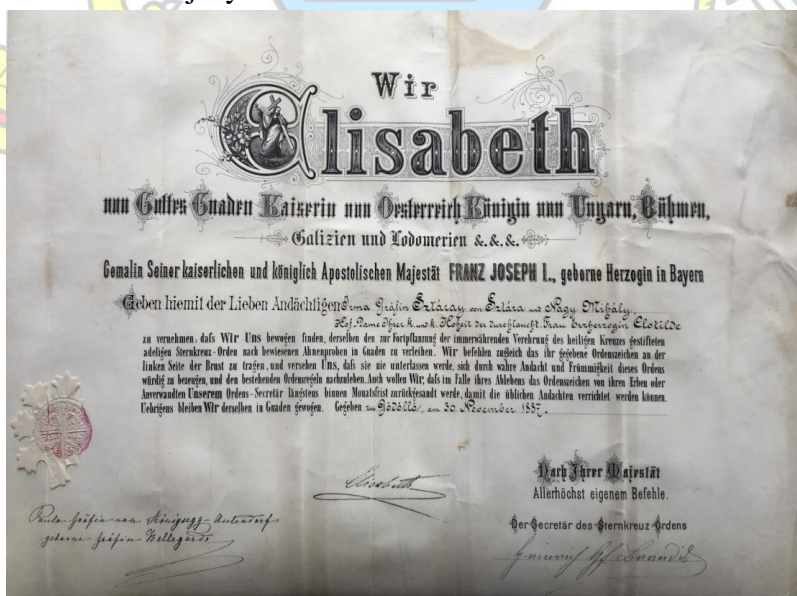 Wir
Elisabeth
von Gottes Gnaden Kaiserin von Oesterreich Königin von Ungarn, Böhmen,
Galizien und Lodomerien &.&.&.
Gemalin Seiner kaiserlichen und königlich Apostolischen Majestät FRANZ JOSEPH I., geborne Herzogin in Bayern
Geben hiemit der Lieben Andächtigen Irma Gräfin Sztáray von Sztára und Nagy Mihály,
Hof-Dame Ihrer k. und k. Hoheit der durchlaucht. Frau Erzherzogin Clotilde
zu vernehmen, dafs WIR Uns bewogen finden, derselben den zur Fortpflanzung der immerwährenden Verehrung des heiligen Kreuzes gestifteten
adeligen Sternkreuz-Orden nach bewiesenen Ahnenproben in Gnaden zu verleihen. Wir befehlen zugleich das ihr gegebene Ordenszeichen an der
linken Seite der Brust zu tragen, und versehen Uns, dafs sie nie unterlassen werde, sich durch wahre Andacht und Frömmigkeit dieses Ordens
würdig zu bezeugen, und den bestehenden Ordensregeln nachzuleben. Auch wollen Wir, dafs im Falle ihres Ablebens das Ordenszeichen von ihren Erben oder
Anverwandten Unserem Ordens-Secretär längstens binnen Monatsfrist zurückgesandt werde, damit die üblichen Andachten verrichtet werden können.
Uebrigens bleiben Wir derselben in Gnaden gewogen. Gegeben zu Gödöllő, am 30. November 1887.
Elisabeth
Nach Ihrer Majestät
Allerhöchst eigenem Befehle.
Der Secretär des Sternkreuz-Ordens
Heinrich Gf Brandis
Paula Gräfin von Königsegg-Aulendorf
geborne Gräfin Bellegarde